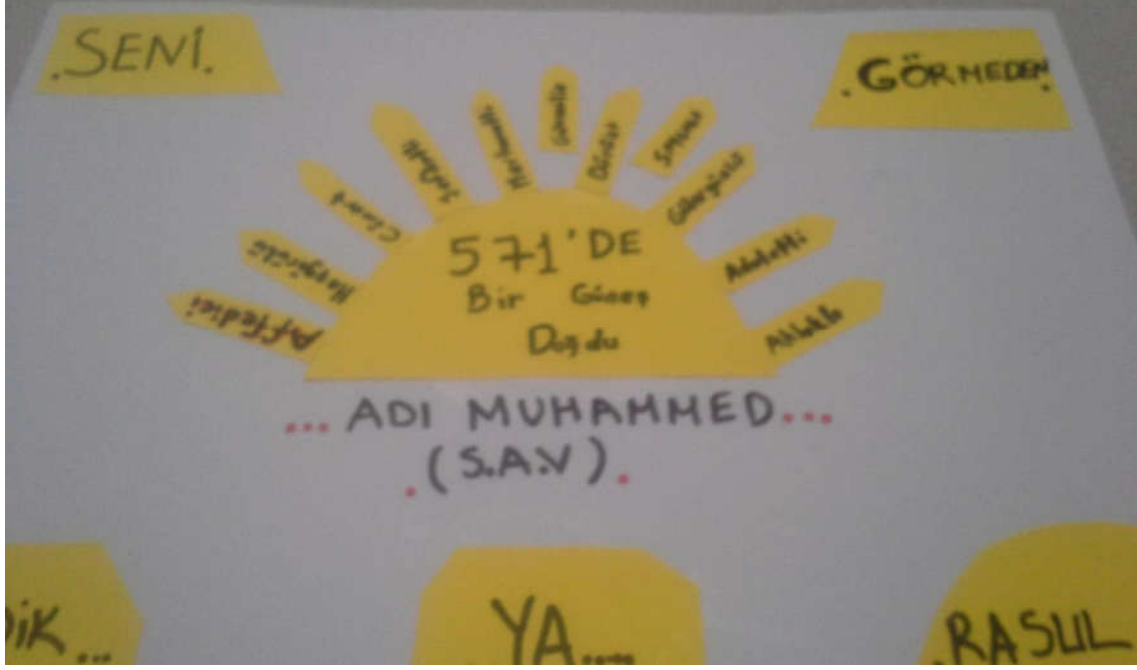 .SENİ.
.GÖRMEDEN.
Affedici
Hoşgörülü
Cömert
Şefkatli
Merhametli
Güvenilir
Dürüst
Güleryüzlü
Adaletli
Ahlaklı
571'DE
Bir Güneş
Doğdu
... ADI MUHAMMED...
.(S.A.V).
DİK...
YA.....
.RASUL